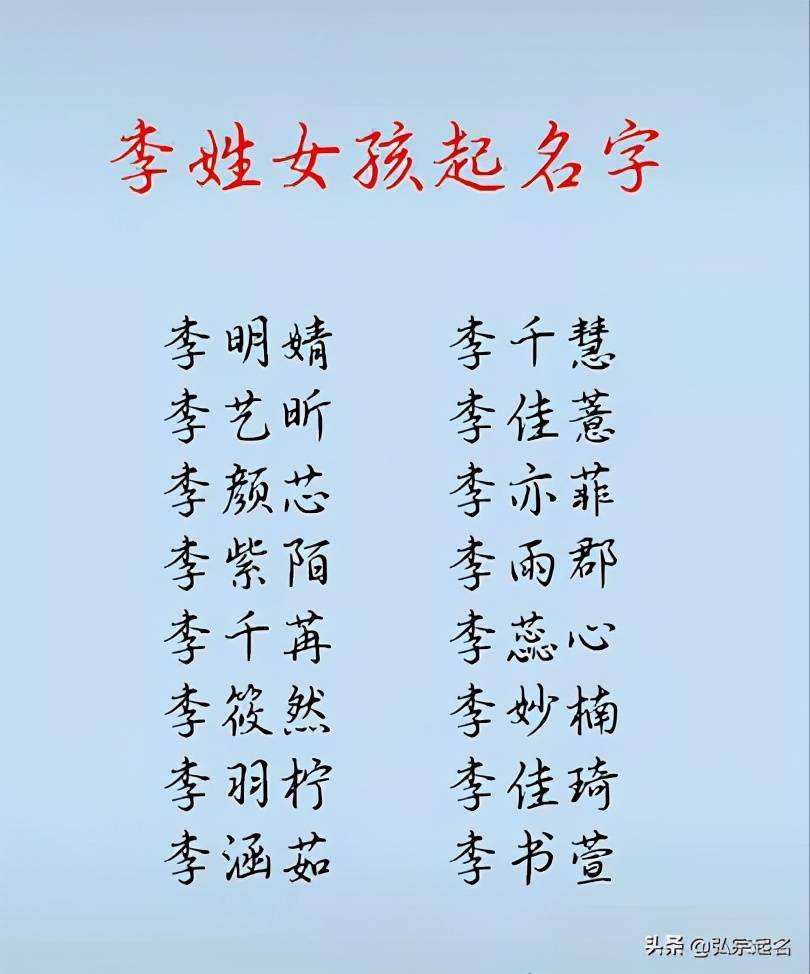 李姓女孩起名字
李明婧 李千慧
李艺昕 李佳薏
李颜芯 李亦菲
李紫陌 李雨郡
李千苒 李蕊心
李筱然 李妙楠
李羽柠 李佳琦
李涵茹 李书萱
头条 @弘宗起名